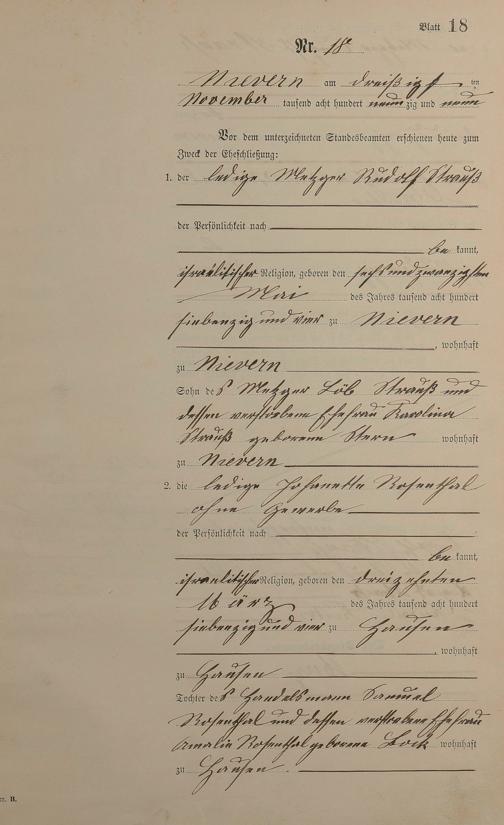 Blatt 18
Nr. 18
Nievern am dreißigsten
November tausend acht hundert neunzig und neun
Vor dem unterzeichneten Standesbeamten erschienen heute zum
Zweck der Eheschließung:
1. der ledige Metzger Rudolf Strauß
der Persönlichkeit nach
be kannt,
israelitischer Religion, geboren den sechsundzwanzigsten
Mai des Jahres tausend acht hundert
siebenzig und vier zu Nievern
, wohnhaft
zu Nievern
Sohn des Metzger Löb Strauß und
dessen verstorbenen Ehefrau Karolina
Strauß geborene Stern wohnhaft
zu Nievern
2. die ledige Johanette Rosenthal
ohne Gewerbe
der Persönlichkeit nach
be kannt,
israelitischer Religion, geboren den dreizehnten
März des Jahres tausend acht hundert
siebenzig und vier zu Hausen
, wohnhaft
zu Hausen
Tochter des Handelsmann Samuel
Rosenthal und dessen verstorbene Ehefrau
Amalia Rosenthal geborene Bock wohnhaft
zu Hausen.
B.